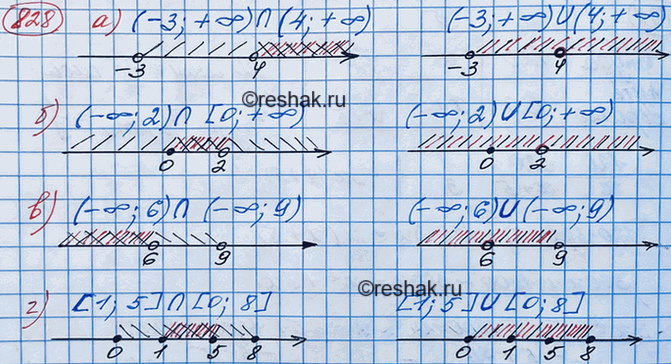 828 а) (-3; +∞)∩(4; +∞) (-3; +∞)∪(4; +∞)
-3 4 -3 4
©reshak.ru
б) (-∞; 2)∩[0; +∞) (-∞; 2)∪[0; +∞)
0 2 0 2
в) (-∞; 6)∩(-∞; 9) (-∞; 6)∪(-∞; 9)
6 9 6 9
©reshak.ru
г) [1; 5]∩[0; 8] [1; 5]∪[0; 8]
0 1 5 8 0 1 5 8